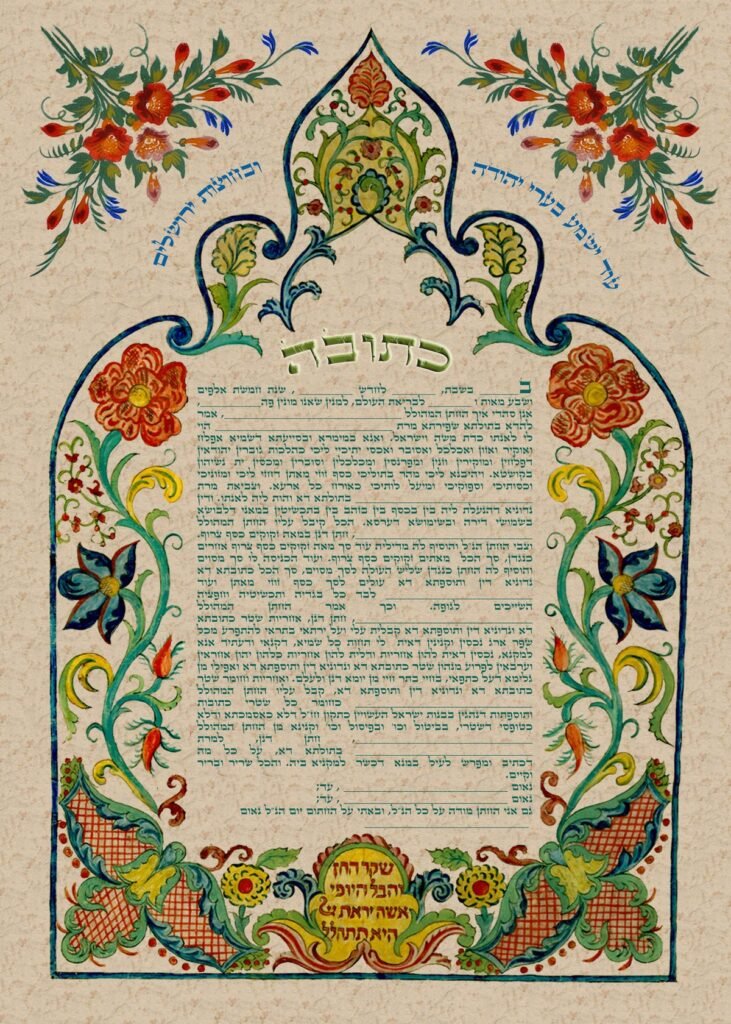 עוד ישמע בערי יהודה
ובחוצות ירושלים
כתובה
ב בשבת, ________ לחדש ________ , שנת חמשת אלפים
ושבע מאות ו ________ לבריאת העולם, למנין שאנו מונין פה ________ ,
אנן סהדי איך החתן המהולל ________ , אמר
להדא בתולתא שפירתא מרת ________ הוי
לי לאנתו כדת משה וישראל, ואנא במימרא ובסייעתא דשמיא אפלח
ואוקיר ואזון ואכלכל ואסובר ואכסי יתיכי ליכי כהלכות גוברין יהודאין
דפלחין ומוקירין וזנין ומפרנסין ומכלכלין וסוברין ומכסין ית נשיהון
בקושטא. ויהיבנא ליכי מהר בתוליכי כסף זוזי מאתן דחזי ליכי ומזוניכי
וכסותיכי וספוקיכי ומיעל לותיכי כאורח כל ארעא. וצביאת מרת
________ בתולתא דא והות ליה לאנתו. ודין
נדוניא דהנעלת ליה בין בכסף בין בזהב בין בתכשיטין במאני דלבושא
בשמושי דירה ובשימושא דערסא. הכל קיבל עליו החתן המהולל
________ , חתן דנן במאת זקוקים כסף צרוף.
וצבי החתן הנ״ל והוסיף לה מדיליה עוד סך מאת זקוקים כסף צרוף אחרים
כנגדן, סך הכל מאתים זקוקים כסף צרוף. ועוד הכניסה לו סך מסוים
והוסיף לה החתן כנגדן שליש העולה לסך מסוים, סך הכל כתובתא דא
נדוניא דין ותוספתא דא עולים לסך כסף זוזי מאתן ועוד
________ לבד כל בגדיה ותכשיטיה וחפציה
השייכים לגופה. וכך אמר החתן המהולל
________ , חתן דנן, אחריות שטר כתובתא
דא ונדוניא דין ותוספתא דא קבלית עלי ועל ירתאי בתראי להתפרע מכל
שפר ארג נכסין וקנינין דאית לי תחות כל שמיא, דקנאי ודעתיד אנא
למקנא, נכסין דאית להון אחריות ודלית להון אחריות כלהון יהון אחראין
וערבאין לפרוע מנהון שטר כתובתא דא ונדוניא דין ותוספתא דא ואפילו מן
גלימא דעל כתפאי, בחיי בתר חיי מן יומא דנן ולעלם. ואחריות וחומר שטר
כתובתא דא ונדוניא דין ותוספתא דא, קבל עליו החתן המהולל
________ כחומר כל שטרי כתובות
ותוספתות דנהגין בבנות ישראל העשויין כתקון חז״ל דלא כאסמכתא ודלא
כטופסי דשטרי, בביטול וכו ובפיסול וכו׳ וקנינא מן החתן המהולל
________ , חתן דנן, למרת
________ בתולתא דא, על כל מה
דכתיב ומפרש לעיל במנא דכשר למקניא ביה. והכל שריר ובריר
וקיים.
נאום ________ , עד;
נאום ________ , עד;
גם אני החתן מודה על כל הנ״ל, ובאתי על החתום יום הנ״ל נאום
שקר החן
והבל היופי
אשה יראת יי
היא תתהלל